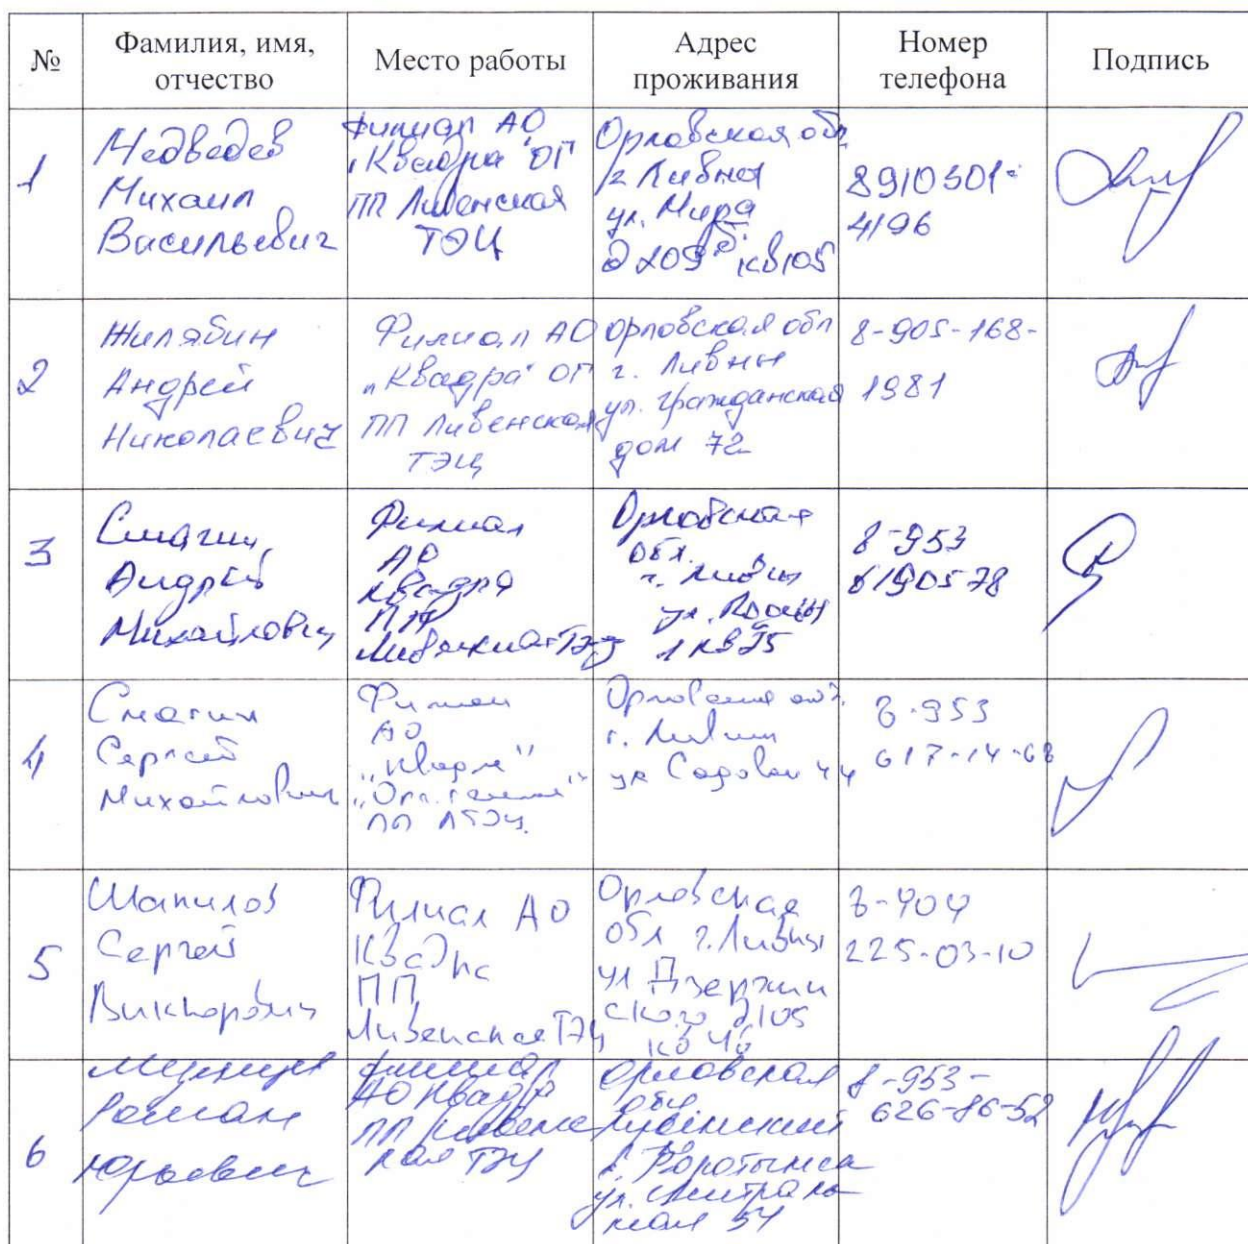 №
Фамилия, имя,
отчество
Место работы
Адрес
проживания
Номер
телефона
Подпись
1
Медведев
Михаил
Васильевич
Филиал АО
"Квадра" ОГ
ПП Ливенская
ТЭЦ
Орловская обл
г Ливны
ул. Мира
д 209
кв 105
8910301-
4196
2
Жилябин
Андрей
Николаевич
Филиал АО
"Квадра" ОГ
ПП Ливенская
ТЭЦ
Орловская обл
г. Ливны
ул. Гражданская
дом 72
8-905-168-
1981
3
Смагин
Андрей
Михайлович
Филиал
АО
Квадра
ПП
Ливенская ТЭЦ
Орловская
обл.
г. Ливны
ул.
8-953
6190578
4
Смагин
Сергей
Михайлович
Филиал
АО
"Квадра"
ПП ЛТЭЦ.
Орловская обл.
г. Ливны
ул Садовая 44
8-953
617-14-68
5
Шапилов
Сергей
Викторович
Филиал АО
Квадра
ПП
Ливенская ТЭЦ
Орловская
обл г. Ливны
ул Дзержин
ского д105
кв 46
8-904
225-03-10
6
Роман
Юрьевич
Филиал
АО Квадра
ПП Ливенс
кая ТЭЦ
Орловская
обл
ул. Централь
ная 54
8-953-
626-86-52